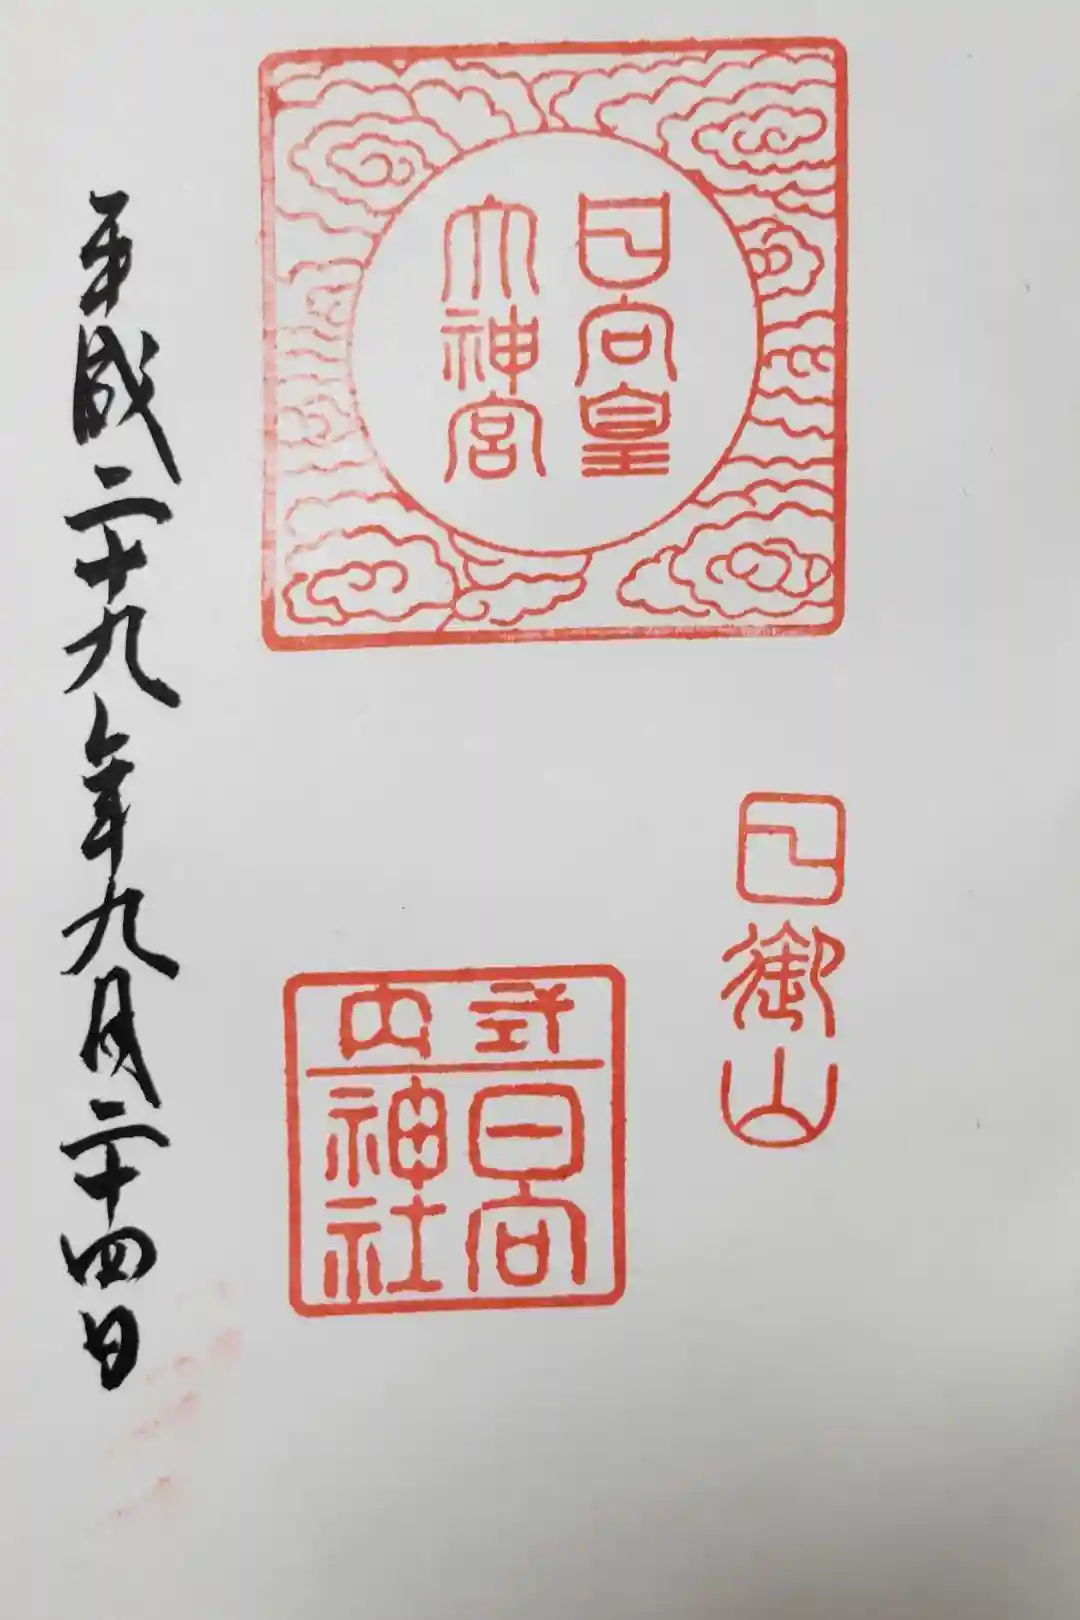 日向皇
大神宮
日御山
式内
日向
神社
平成二十九年九月二十四日